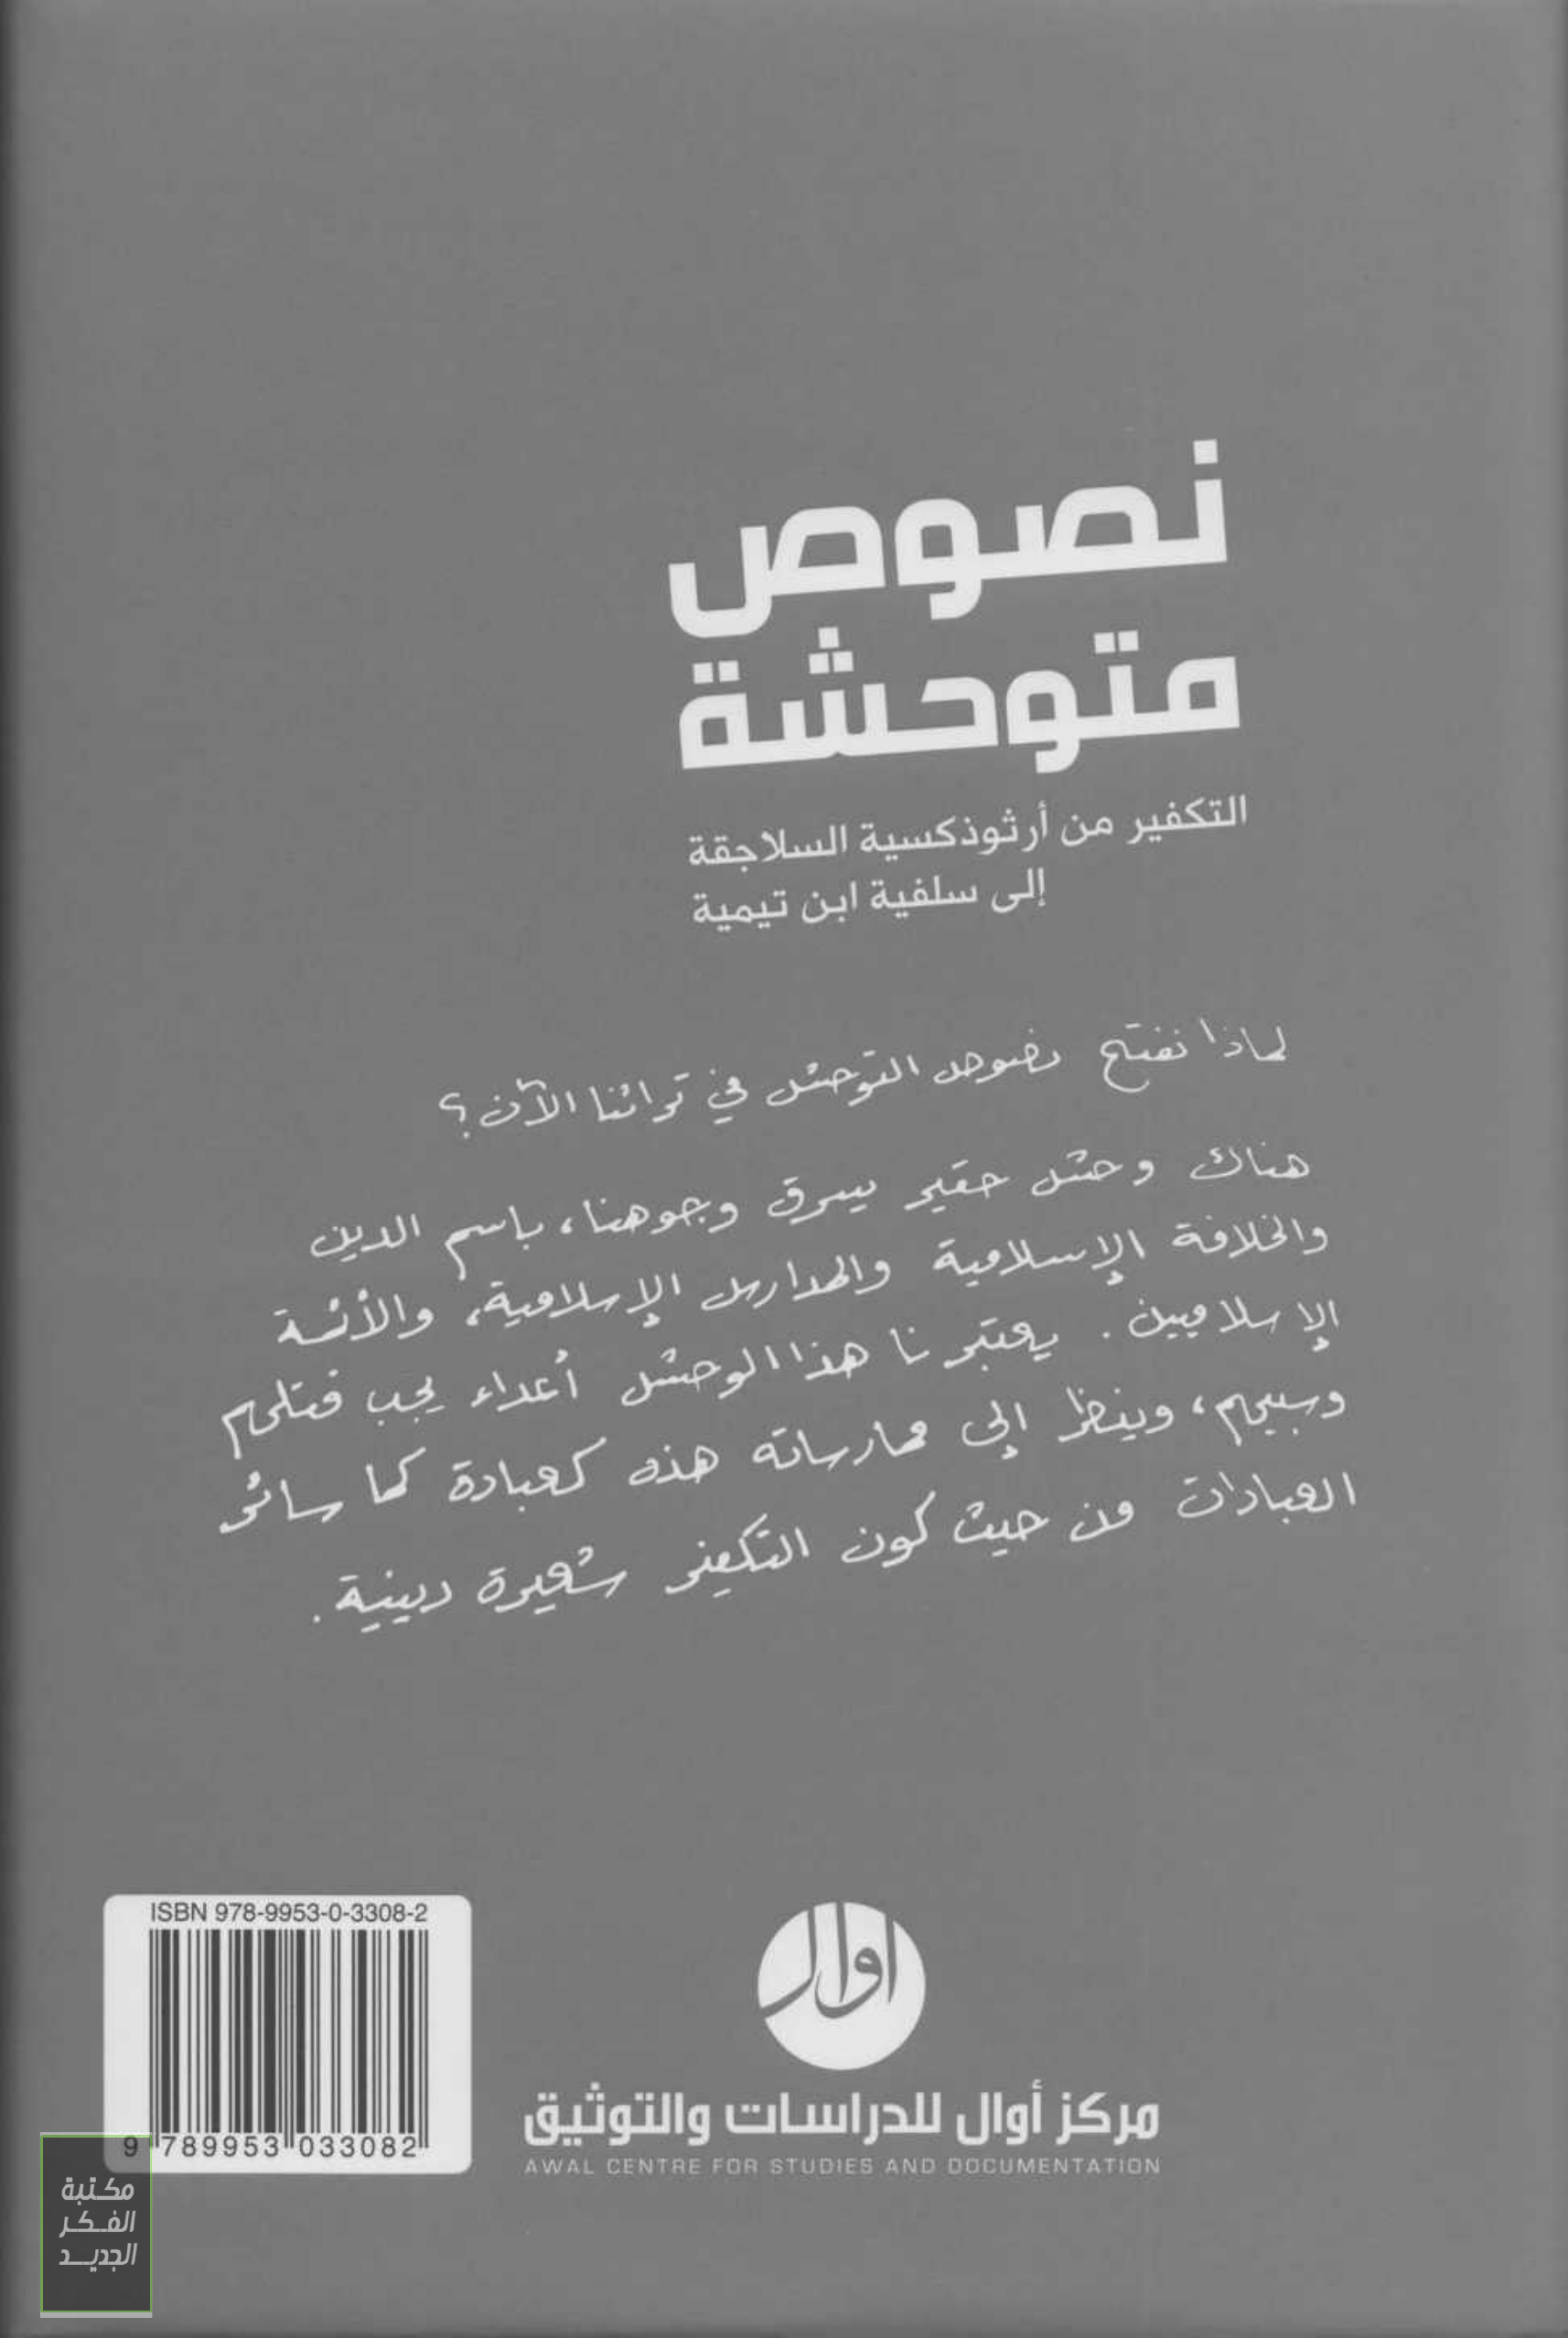 نصوص
متوحشة
التكفير من أرثوذكسية السلاجقة
إلى سلفية ابن تيمية
لماذا نفتح نصوص التوحش في تراثنا الآن؟
هناك وحش حقير يسرق وجوهنا، باسم الدين
والخلافة الإسلامية والمدارس الإسلامية، والأئمة
الإسلاميين. يعتبرنا هذا الوحش أعداء يجب قتلهم
وسبيهم، وينظر إلى ممارساته هذه كعبادة كما سائر
العبادات من حيث كون التكفير شعيرة دينية.
ISBN 978-9953-0-3308-2
9 789953 033082
أوال
مركز أوال للدراسات والتوثيق
AWAL CENTRE FOR STUDIES AND DOCUMENTATION
مكتبة
الفكر
الجديد